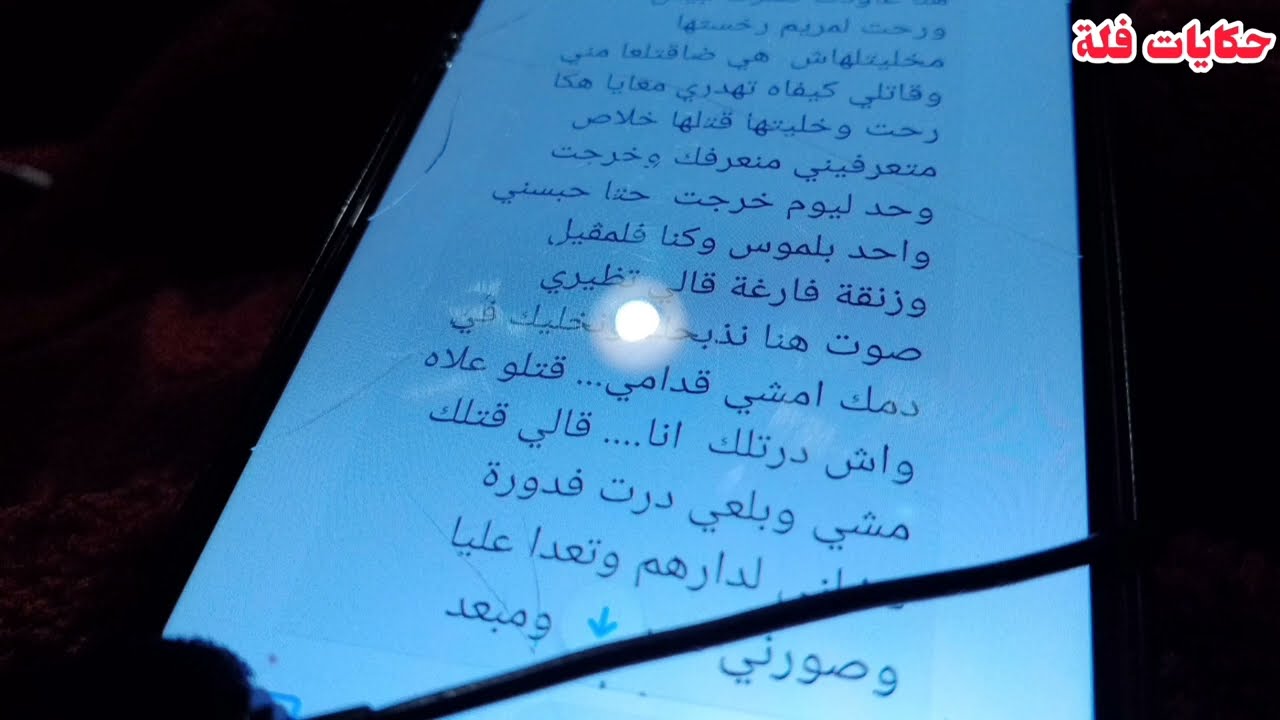 حكايات فلة
ورحت لمريم رخستها
مخليتلهاش هي ضاقتلعا مني
وقاتلي كيفاه تهدري معايا هكا
رحت وخليتها قتلها خلاص
متعرفيني منعرفك وخرجت
وحد ليوم خرجت حتا حبسني
واحد بلموس وكنا فلمقيل
وزنقة فارغة قالي تظيري
صوت هنا ونخليك في
دمك امشي قدامي... قتلو علاه
واش درتلك انا.... قالي قتلك
مشي وبلعي درت فدورة
لدارهم وتعدا عليا
وصورني ومبعد